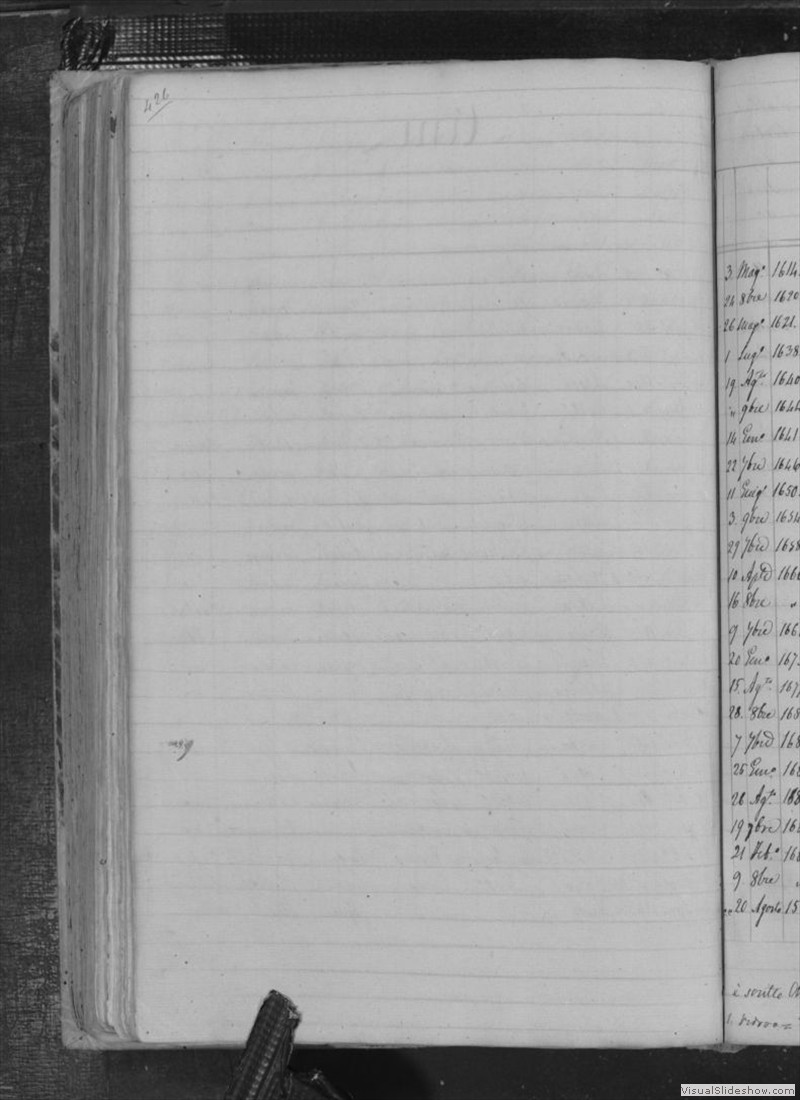 426
3. Mag.o 1614.
24 8bre 1620
26 Mag.o 1621.
1 Lug.o 1638.
19 Ag.to 1640
" 9bre 1644
14 Gen.o 1641
22 7bre 1646
11 Giug.o 1650.
3. 9bre 1654
29 7bre 1658
10 Aple 166
16 8bre "
9 7bre 166
20 Gen.o 167
15. Ag.to 167
28. 8bre 168
7 7bre 168
25 Gen.o 168
26 Ag.to 168
19 7bre 16
21 Feb.o 168
9 8bre
20 Agosto 15
è scritto
VisualSlideshow.com